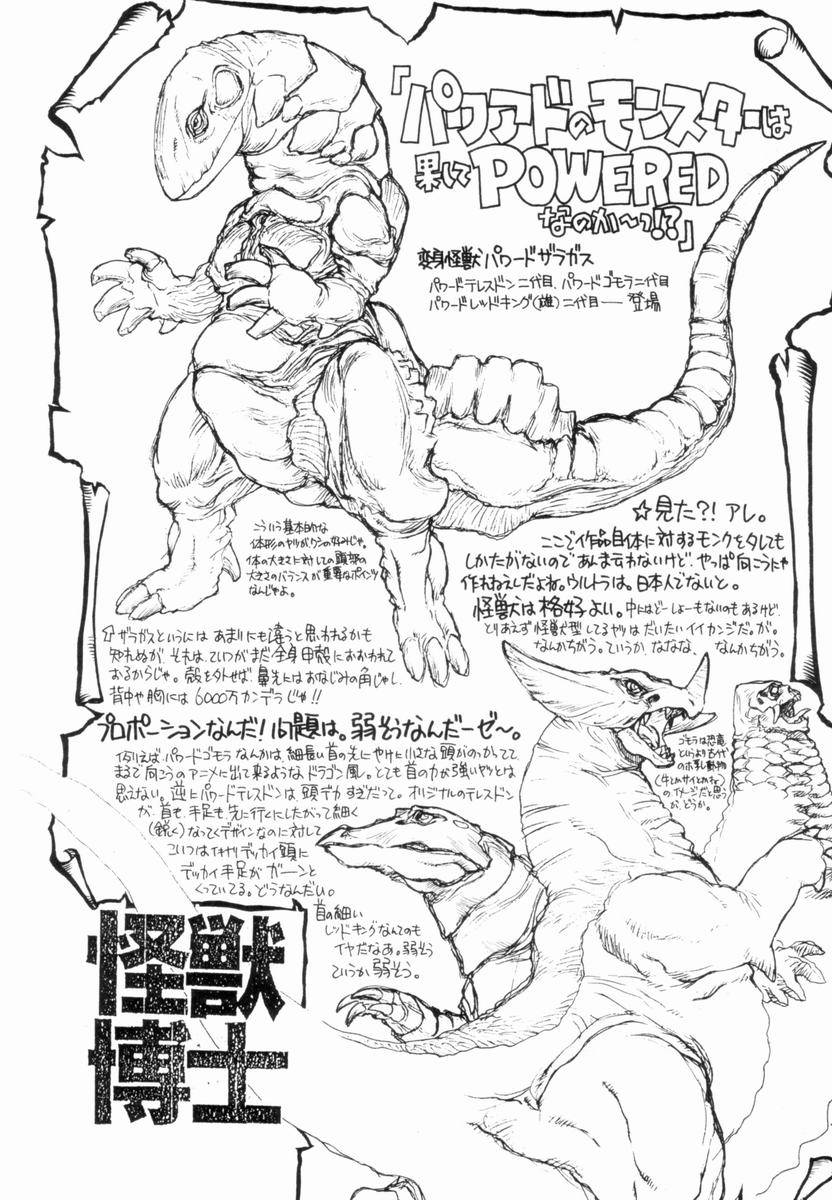 「パワアドのモンスターは
果して POWERED
なのか〜っ!?」
変身怪獣 パワードザラガス
パワードテレスドン二代目、パワードゴモラ二代目
パワードレッドキング(雄)二代目── 登場
☆見た?! アレ。
ここで作品自体に対するモンクをタレても
しかたがないのであんま云わないけど、やっぱ向こうにゃ
作れねえんだよね。ウルトラは。日本人でないと。
怪獣は格好よい。中にはどーしょーもないのもあるけど、
とりあえず怪獣型してるヤツはだいたいイイカンジだ。が。
なんかちがう。ていうか、なななな、なんかちがう。
こういう基本的な
体形のヤツがワシの好みじゃ。
体の大きさに対しての頭部の
大きさのバランスが重要なポイント
なんじゃよ。
ザラガスというにはあまりにも違うと思われるかも
知れぬが、それは、こいつがまだ全身甲殻におおわれて
おるからじゃ。殻を外せば、鼻先にはおなじみの角じゃし、
背中や胸には6000万カンデラじゅ!!
プロポーションなんだ!問題は。弱そうなんだーゼ〜。
例えば、パワードゴモラなんかは、細長い首の先にやけに小さな頭がのっかてて
まるで向こうのアニメに出て来るようなドラゴン風。とても首の力が強いヤツとは
思えない。逆にパワードテレスドンは、頭デカすぎだって。オリジナルのテレスドン
が、首も、手足も、先に行くにしたがって細く
(鋭く)なってくデザインなのに対して
こいつはデッカイ頭に
デッカイ手足がガーンと
くっついてる。どうなんだい。
首の細い
レッドキングなんてのも
イヤだなあ。弱そう
ていうか弱そう。
ゴモラは恐竜
というより古代
の水戻し動物
(牛とかサイとかね)
のイメージだと思う
が、どうか。
怪獣
博士